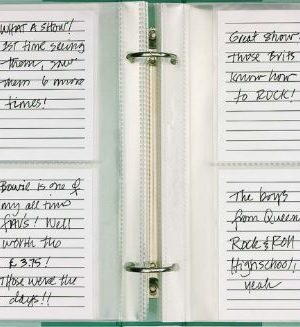 WHAT A SHOW!
1ST time seeing
them, saw
them 6 more
times!
Great show!
Those Brits
know how
to ROCK!
Bowie is one of
my all time
FAVS! Well
worth the
£3.75!
Those were the
days!!
The boys
from Queen
Rock & Roll
Highschool,
yeah